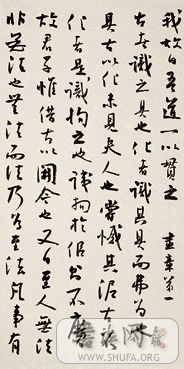 我故曰吾道一以貫之 畫章第一
古者識之具也化者識其具而弗為也
具古以化未見夫人也嘗憾其泥古不
化者是識拘之也識拘於似則不廣
故君子惟借古以開今也又曰至人無法
非無法也無法而法乃為至法凡事有
WWW.SHUFA.ORG